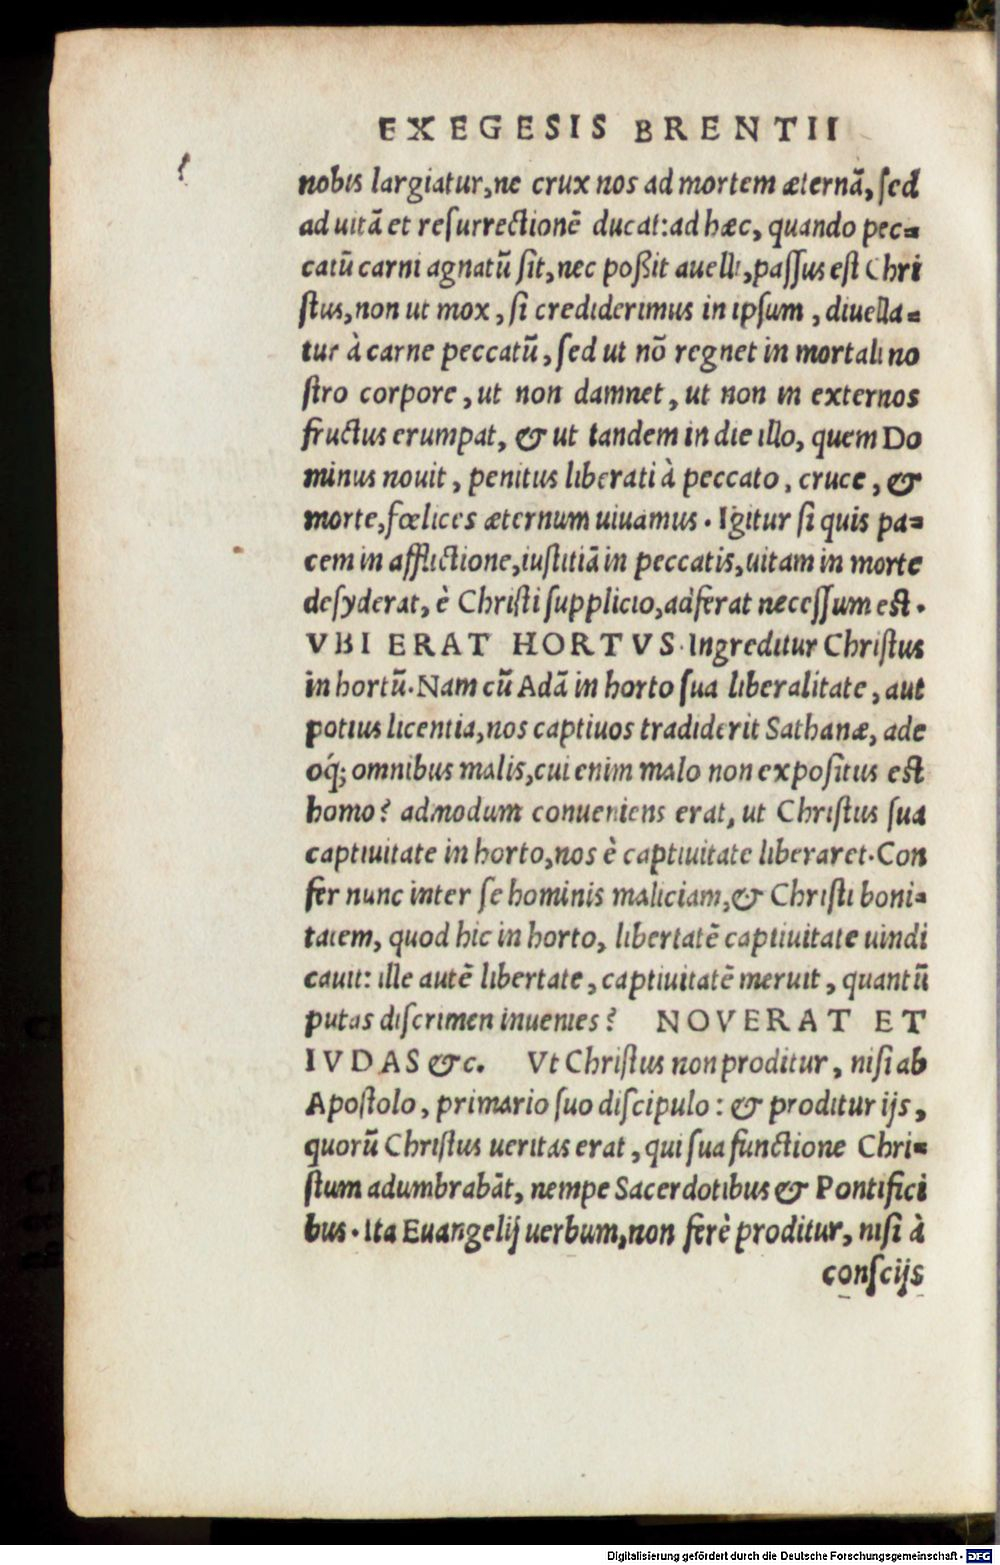 EXEGESIS BRENTII
nobis largiatur, ne crux nos ad mortem æternã, ſed
ad uitã et reſurrectionẽ ducat: ad hæc, quando pec=
catũ carni agnatũ ſit, nec poßit auelli, paſſus eſt Chri
ſtus, non ut mox, ſi crediderimus in ipſum, diuella=
tur à carne peccatũ, ſed ut nõ regnet in mortali no
ſtro corpore, ut non damnet, ut non in externos
fructus erumpat, & ut tandem in die illo, quem Do
minus nouit, penitus liberati à peccato, cruce, &
morte, fœlices æternum uiuamus. Igitur ſi quis pa=
cem in afflictione, iuſtitiã in peccatis, uitam in morte
deſyderat, è Chriſti ſupplicio, adferat neceſſum eſt.
VBI ERAT HORTVS. Ingreditur Chriſtus
in hortũ. Nam cũ Adã in horto ſua liberalitate, aut
potius licentia, nos captiuos tradiderit Sathanæ, ade
oq́; omnibus malis, cui enim malo non expoſitus eſt
homo? admodum conueniens erat, ut Chriſtus ſua
captiuitate in horto, nos è captiuitate liberaret. Con
fer nunc inter ſe hominis maliciam, & Chriſti boni=
tatem, quod hic in horto, libertatẽ captiuitate uindi
cauit: ille autẽ libertate, captiuitatẽ meruit, quantũ
putas diſcrimen inuenies? NOVERAT ET
IVDAS &c. Vt Chriſtus non proditur, niſi ab
Apoſtolo, primario ſuo diſcipulo: & proditur ijs,
quorũ Chriſtus ueritas erat, qui ſua functione Chri=
ſtum adumbrabãt, nempe Sacerdotibus & Pontifici
bus. Ita Euangelij uerbum, non ferè proditur, niſi à
conſcijs
Digitalisierung gefördert durch die Deutsche Forschungsgemeinschaft - DFG